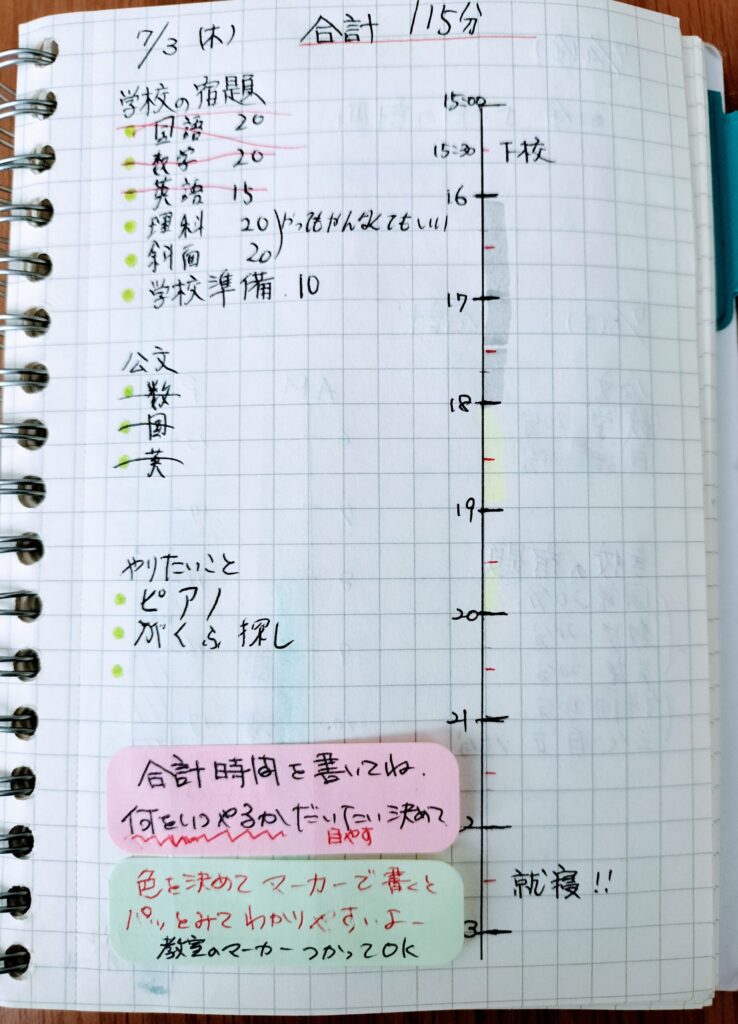 7/3 (木)
合計 115分
学校の宿題
・国語 20
・数学 20
・英語 15
・理科 20
・斜面 20
やってもやんなくてもいい
・学校準備 . 10
公文
・数
・国
・英
やりたいこと
・ピアノ
・がくふ 探し
・
15:00
15:30 下校
16
17
18
19
20
21
2
就寝!!
3
合計時間を書いてね.
何をいつやるか だいたい決めて
目やす
色を決めて マーカーで書くと
パッとみて わかりやすいよー
教室のマーカー つかってOK